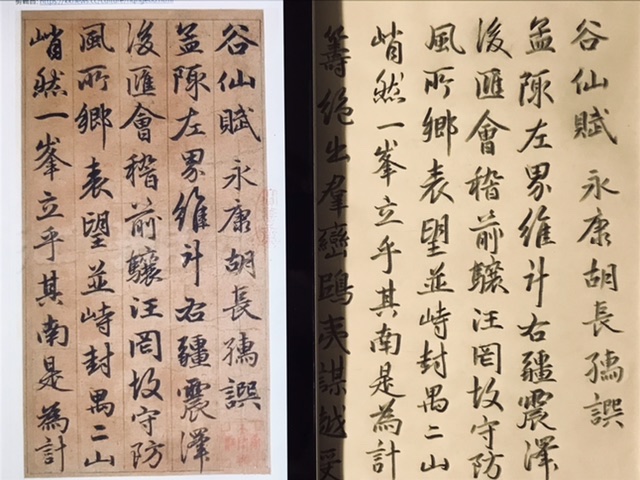 谷仙賦 永康胡長孺譔
孟陬左界維斗右疆震澤
後匯會稽前驤汪罔故守防
風所鄉表望並峙封禺二山
峭然一峯立乎其南是為計
谷仙賦 永康胡長孺譔
孟陬左界維斗右疆震澤
後匯會稽前驤汪罔故守防
風所鄉表望並峙封禺二山
峭然一峯立乎其南是為計
籌絕出羣巒鴟夷謀越受